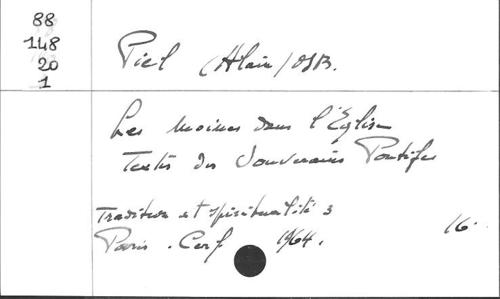 88
148
20
1
Piel (Alain) OSB.
Les moines dans l'Église
Textes des Souverains Pontifes
Tradition et spiritualité 3
Paris. Cerf 1964. 16.